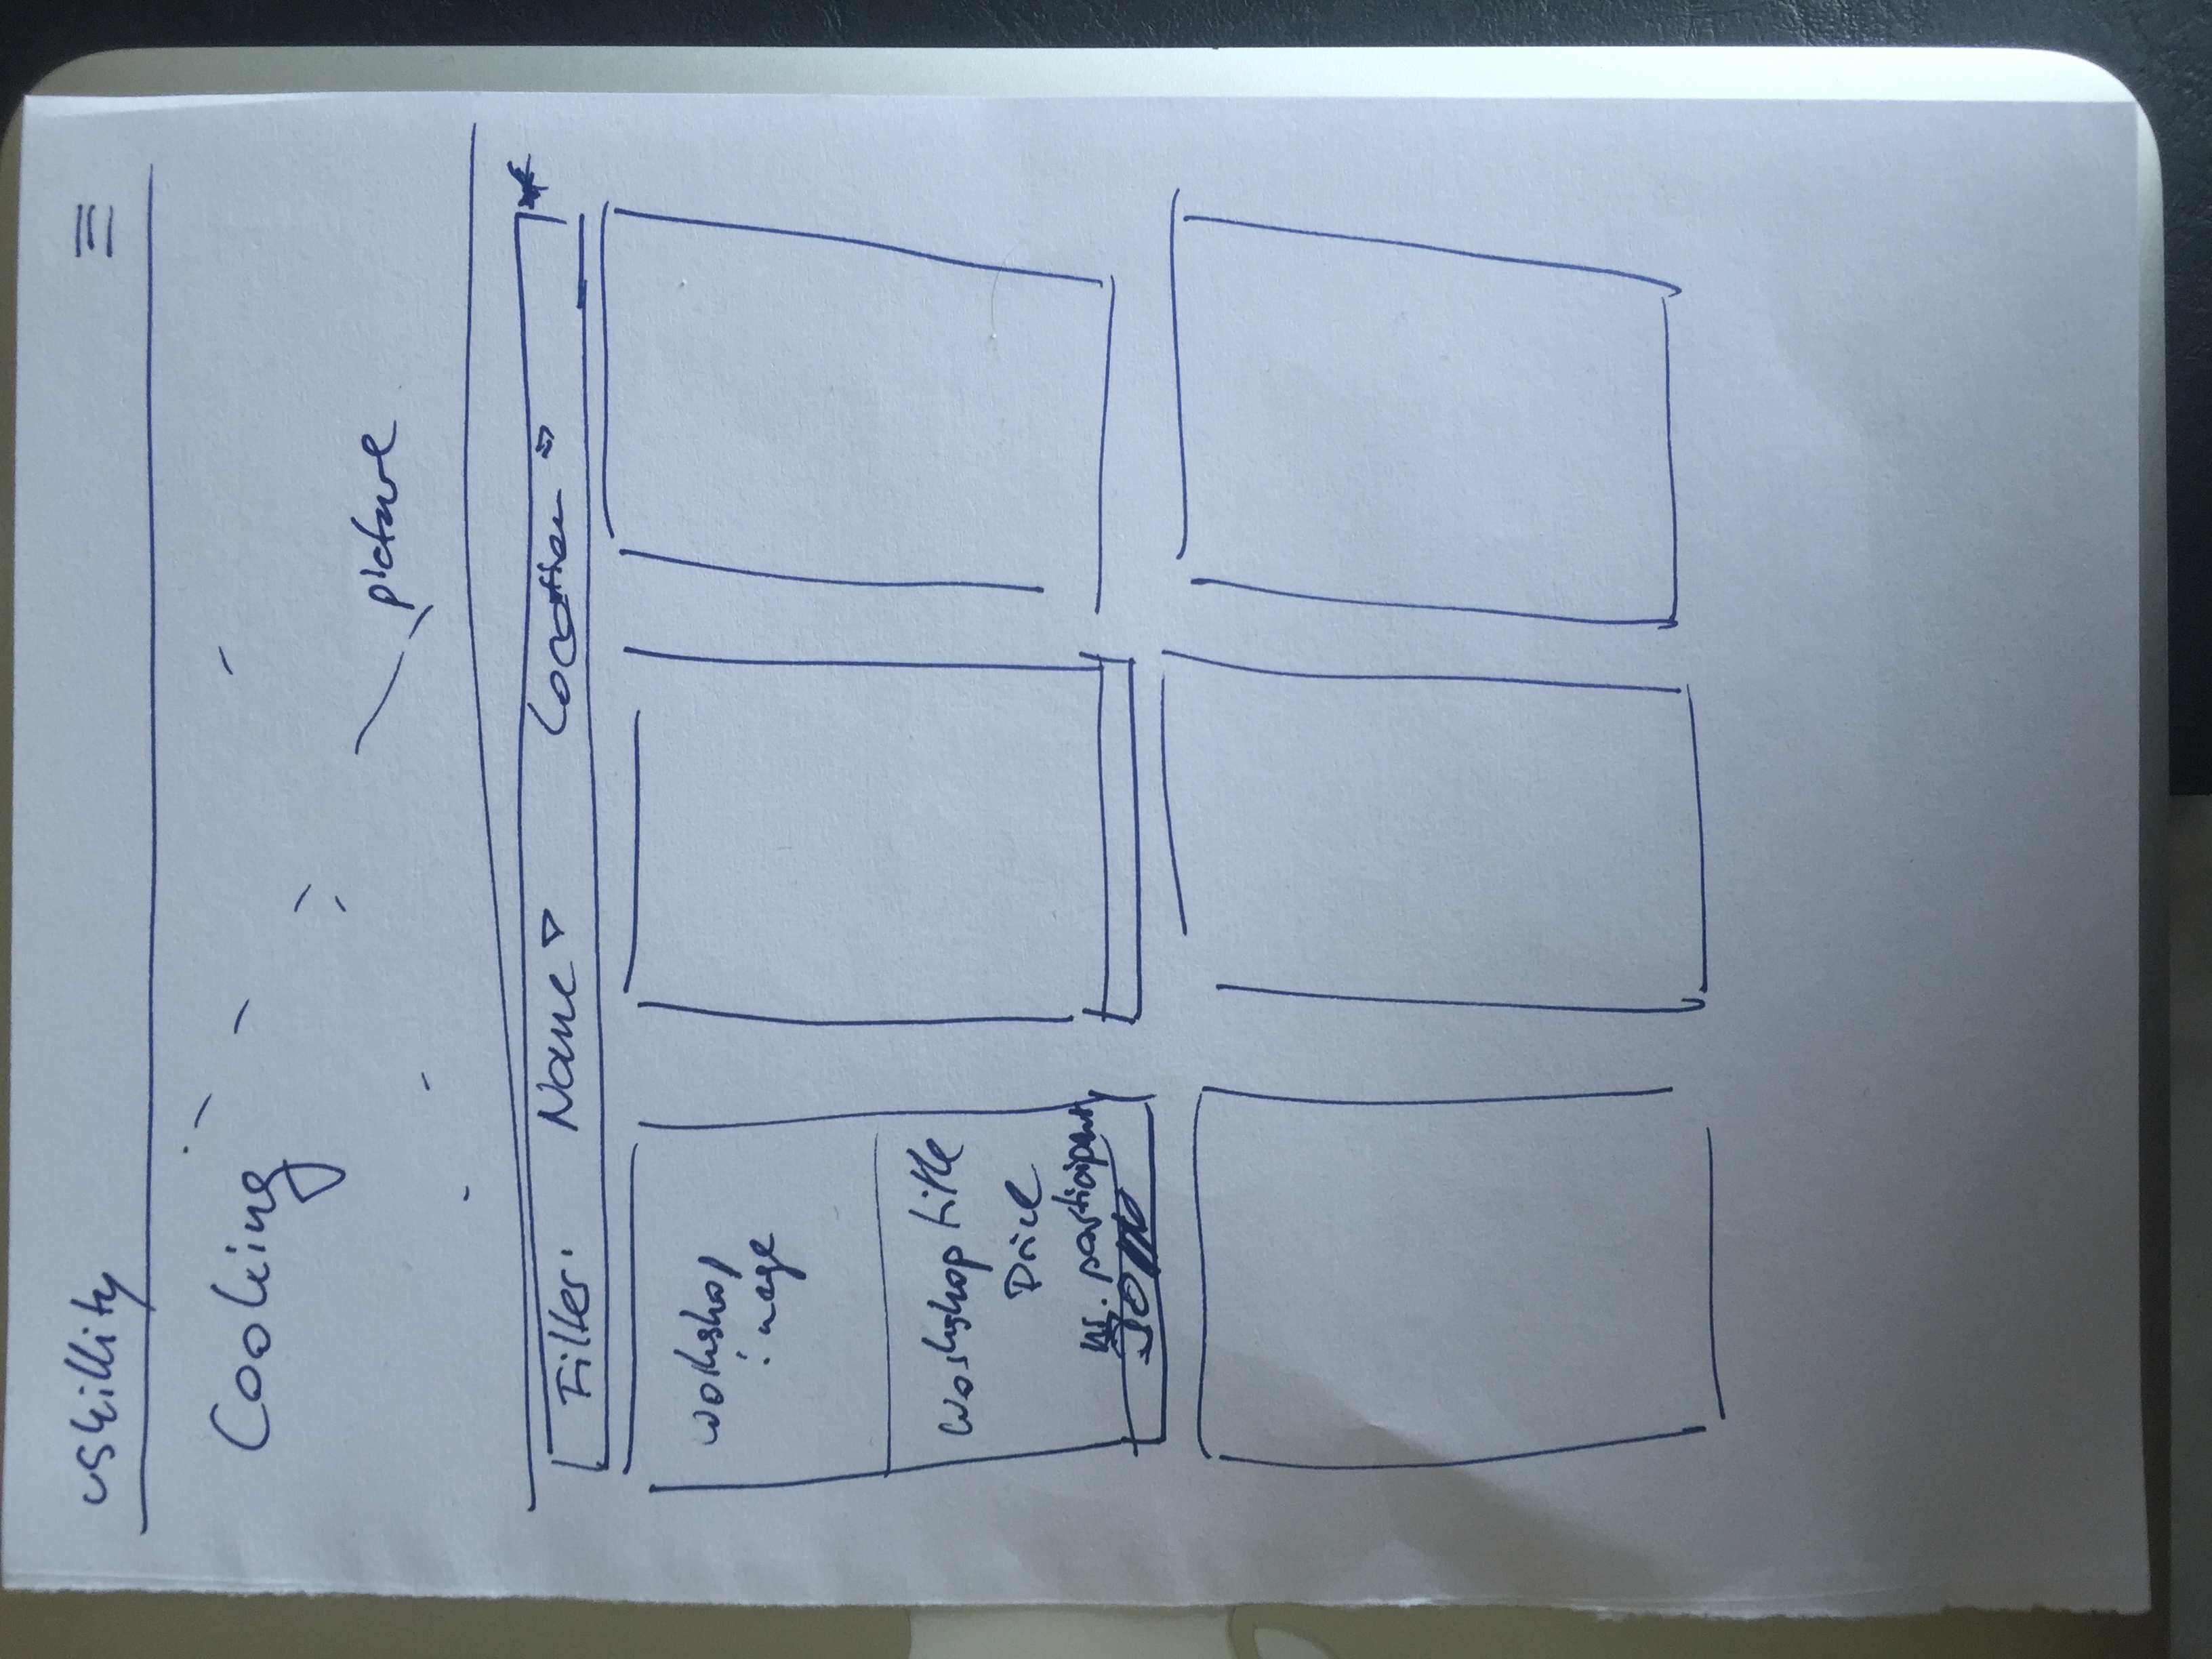 uskillity
Cooking
picture
Filter: Name Location
workshop
image
Workshop title
Price
nr. participant